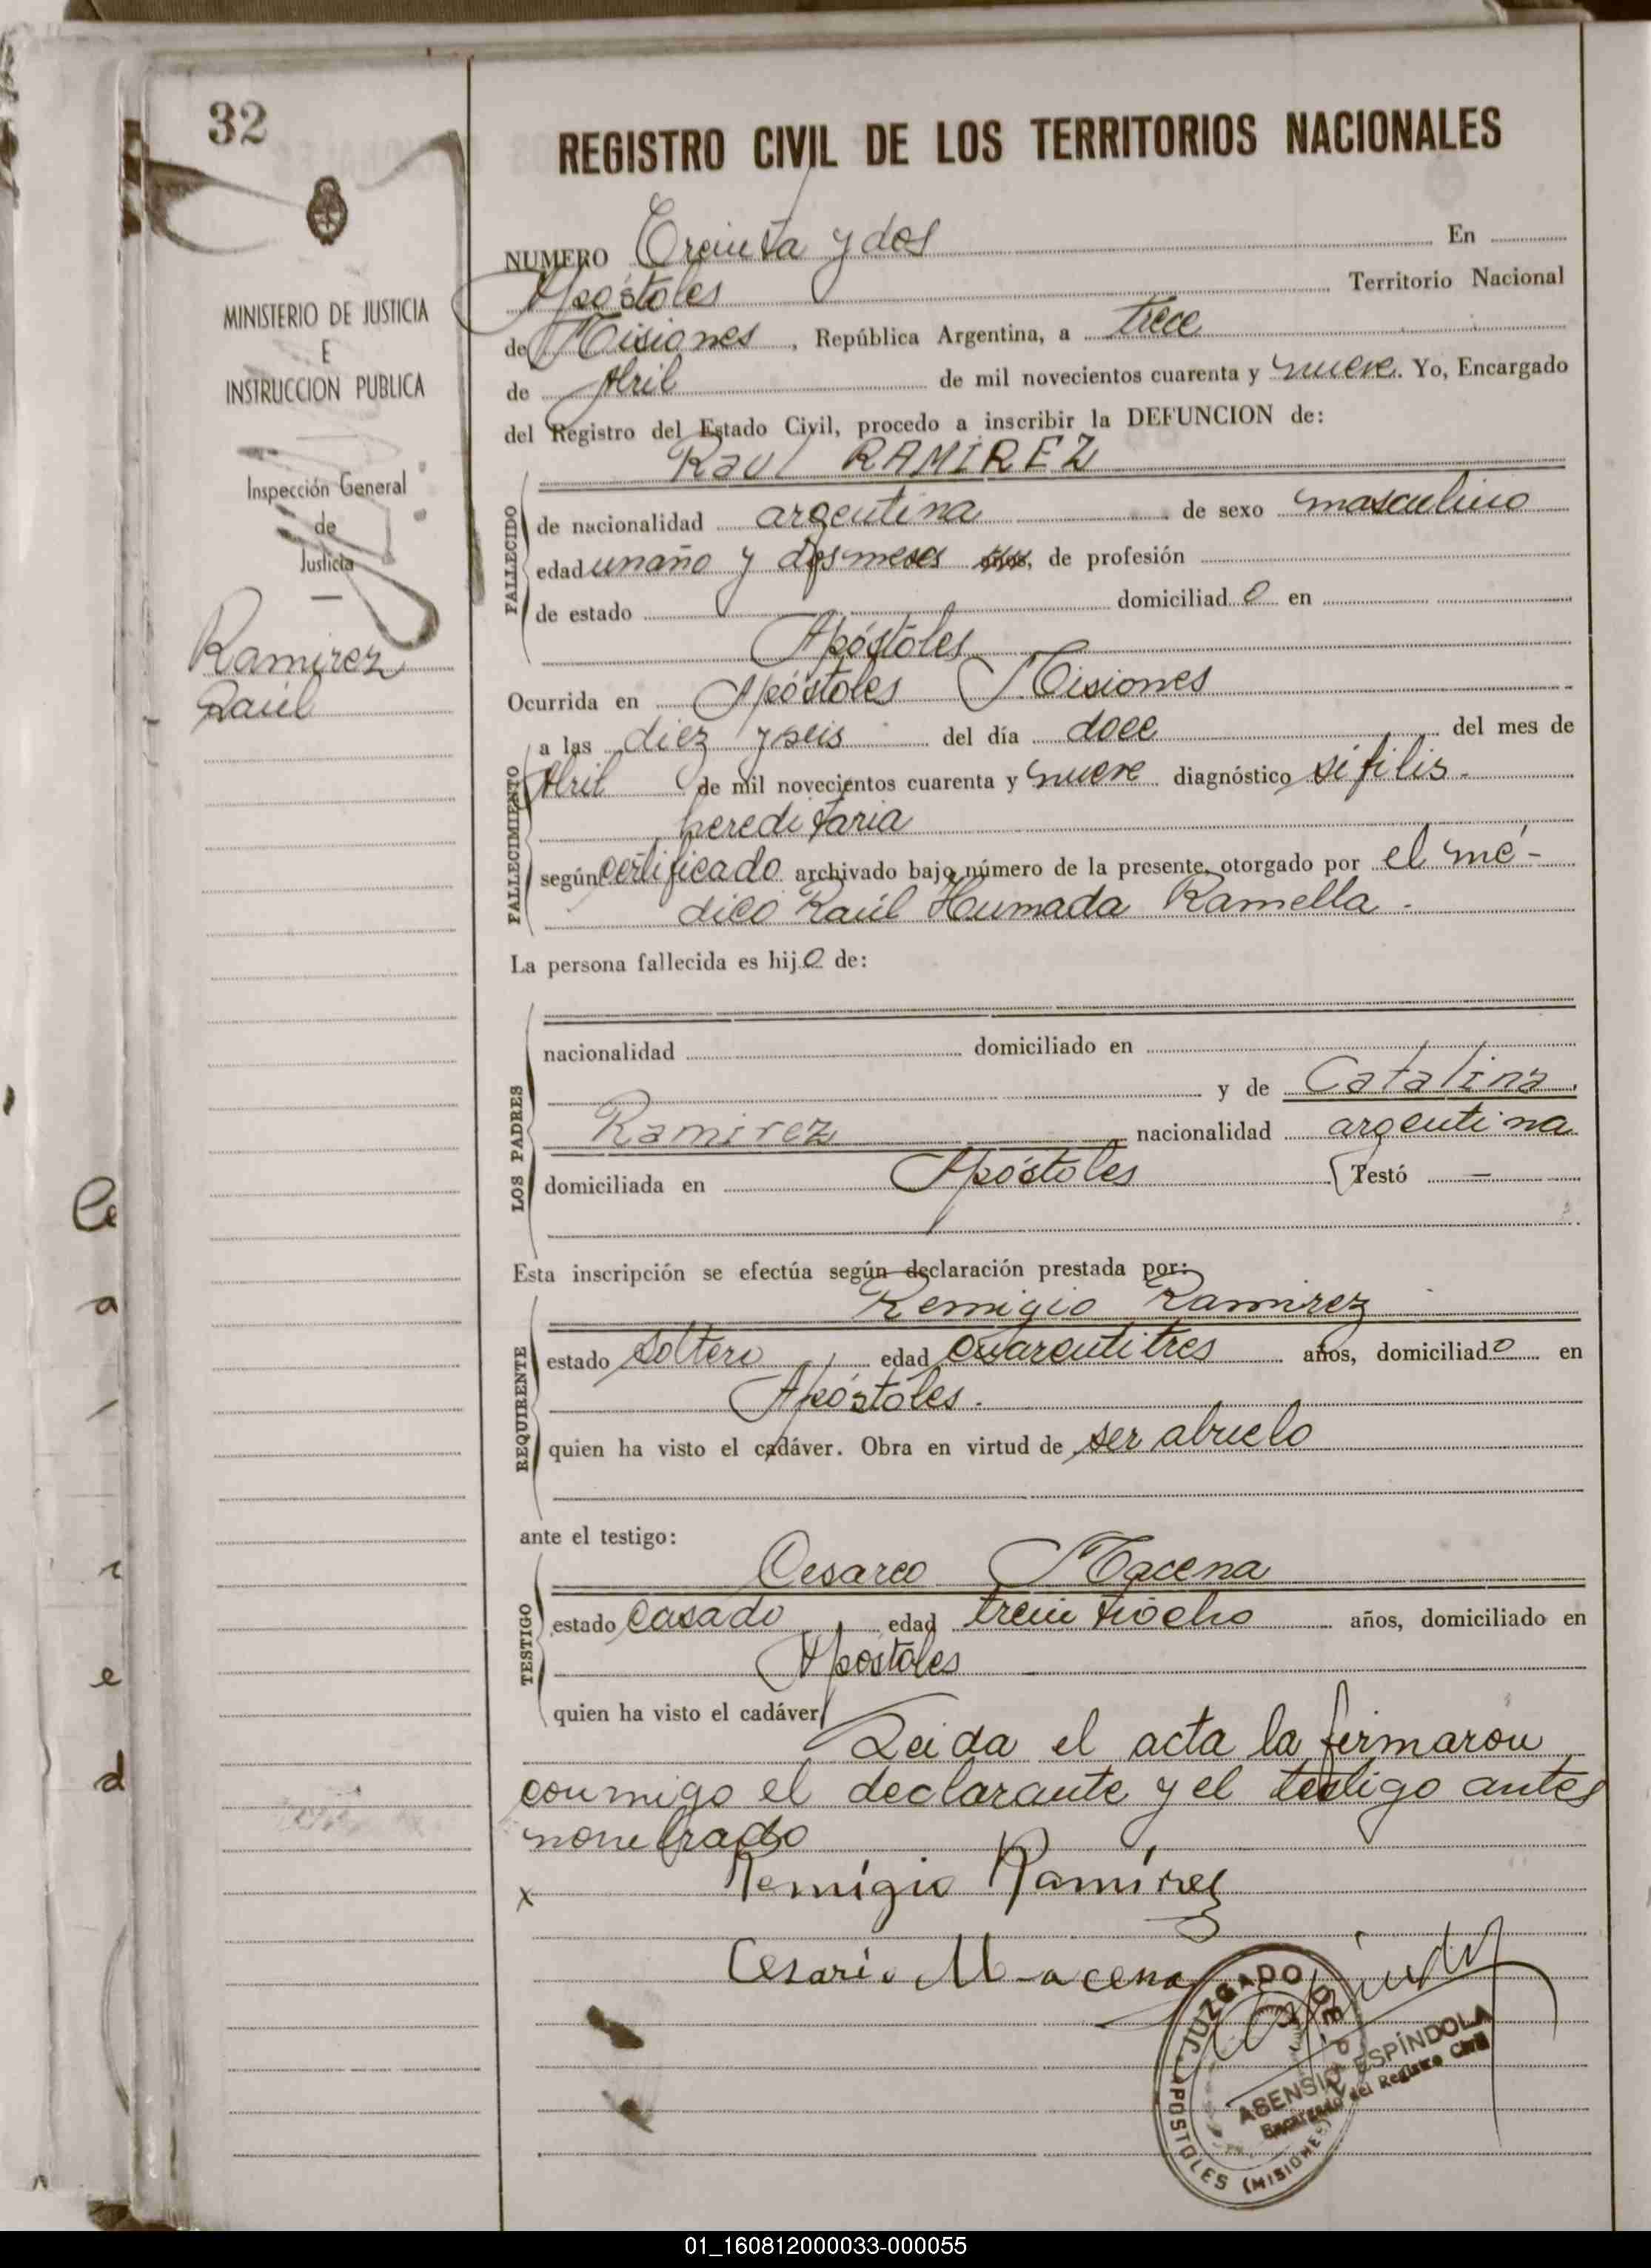 32
REGISTRO CIVIL DE LOS TERRITORIOS NACIONALES
MINISTERIO DE JUSTICIA
E
INSTRUCCION PUBLICA
Inspección General
de
Justicia
Ramirez
Raúl
NUMERO Treinta y dos En
Apóstoles Territorio Nacional
de Misiones, República Argentina, a trece
de Abril de mil novecientos cuarenta y nueve. Yo, Encargado
del Registro del Estado Civil, procedo a inscribir la DEFUNCION de:
Raul RAMIREZ
FALLECIDO
de nacionalidad argentina de sexo masculino
edad un año y dos meses años, de profesión
de estado domiciliado en
Apóstoles
Ocurrida en Apóstoles Misiones
FALLECIMIENTO
a las diez y seis del día doce del mes de
Abril de mil novecientos cuarenta y nueve diagnóstico sifilis.
hereditaria
según certificado archivado bajo número de la presente, otorgado por el mé-
dico Raúl Humada Ramella.
La persona fallecida es hijo de:
LOS PADRES
nacionalidad domiciliado en
y de Catalina
Ramirez nacionalidad argentina
domiciliada en Apóstoles Testó —
Esta inscripción se efectúa según declaración prestada por:
REQUIRENTE
Remigio Ramirez
estado soltero edad cuarentitres años, domiciliado en
Apóstoles.
quien ha visto el cadáver. Obra en virtud de ser abuelo
ante el testigo:
TESTIGO
Cesareo Macena
estado casado edad treintiocho años, domiciliado en
Apóstoles
quien ha visto el cadáver
Leida el acta la firmaron
conmigo el declarante y el testigo antes
nombrado
x Remigio Ramírez
Cesario Macena
JUZGADO DE PAZ
APOSTOLES (MISIONES)
ASENSIO ESPÍNDOLA
Encargado del Registro Civil
e
a
e
d
01_160812000033-000055